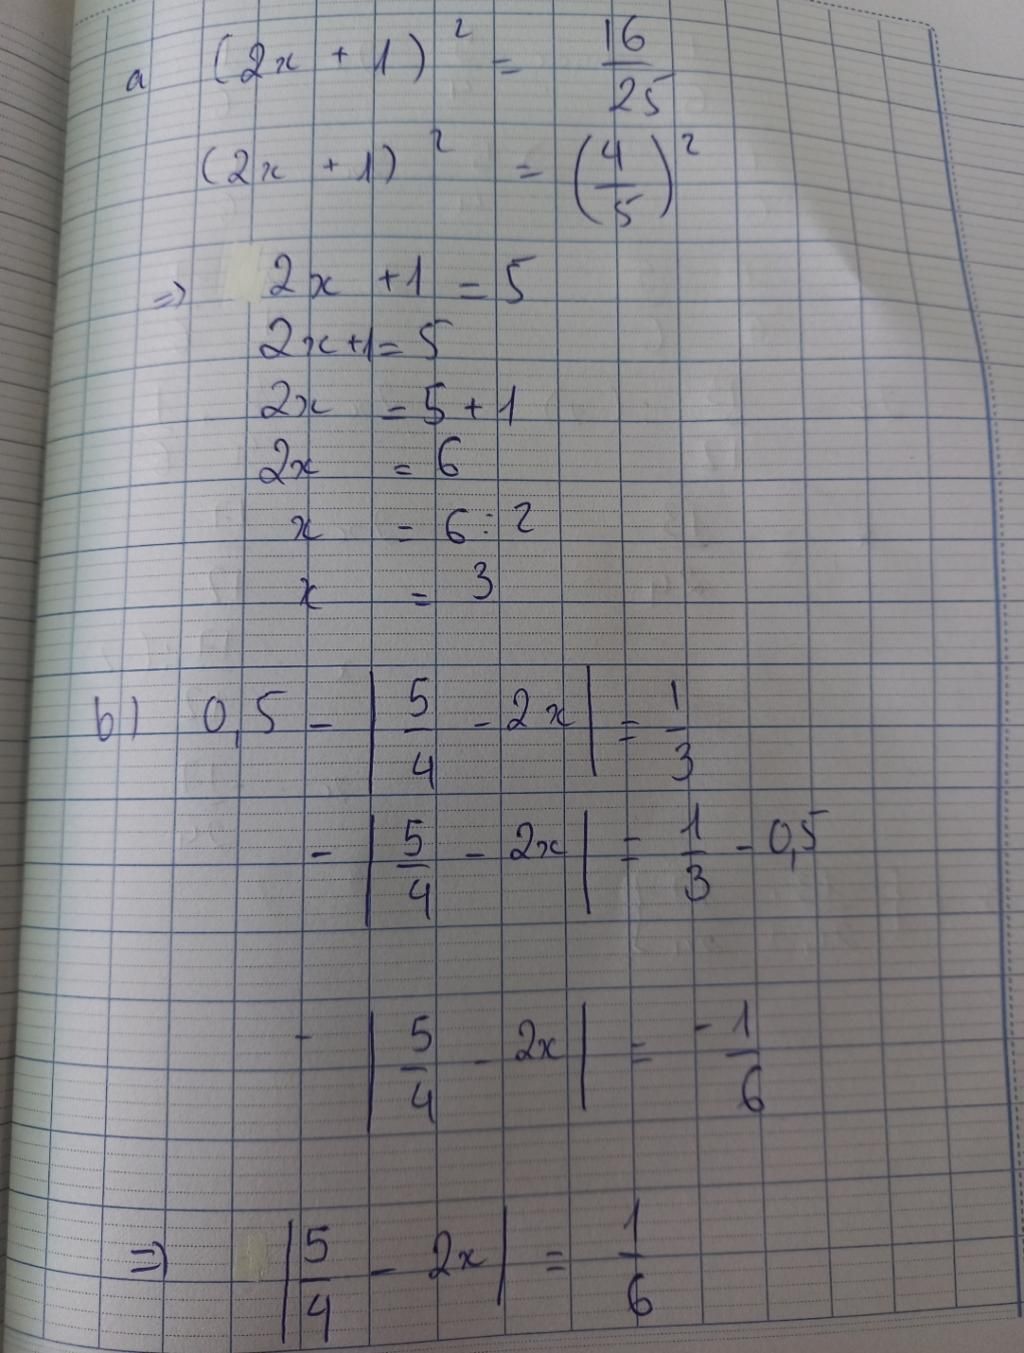 a (2x + 1)² = 16/25
(2x + 1)² = (4/5)²
=> 2x + 1 = 5
2x + 1 = 5
2x = 5 + 1
2x = 6
x = 6 : 2
x = 3
b) 0,5 - |5/4 - 2x| = 1/3
- |5/4 - 2x| = 1/3 - 0,5
- |5/4 - 2x| = -1/6
=> |5/4 - 2x| = 1/6